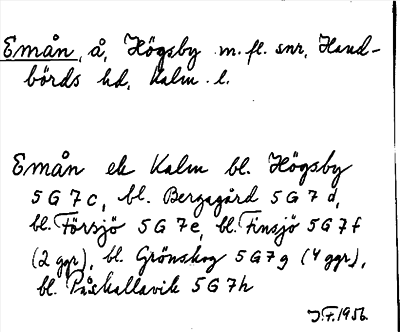 Emån, å, Högsby m. fl. snr, Hand-
börds hd, Kalm. l.
Emån ek Kalm bl. Högsby
5 G 7 c, bl. Bergagård 5 G 7 d,
bl. Försjö 5 G 7 e, bl. Finsjö 5 G 7 f
(2 ggr), bl. Grönskog 5 G 7 g (4 ggr),
bl. Påskallavik 5 G 7 h
J.F. 1956.